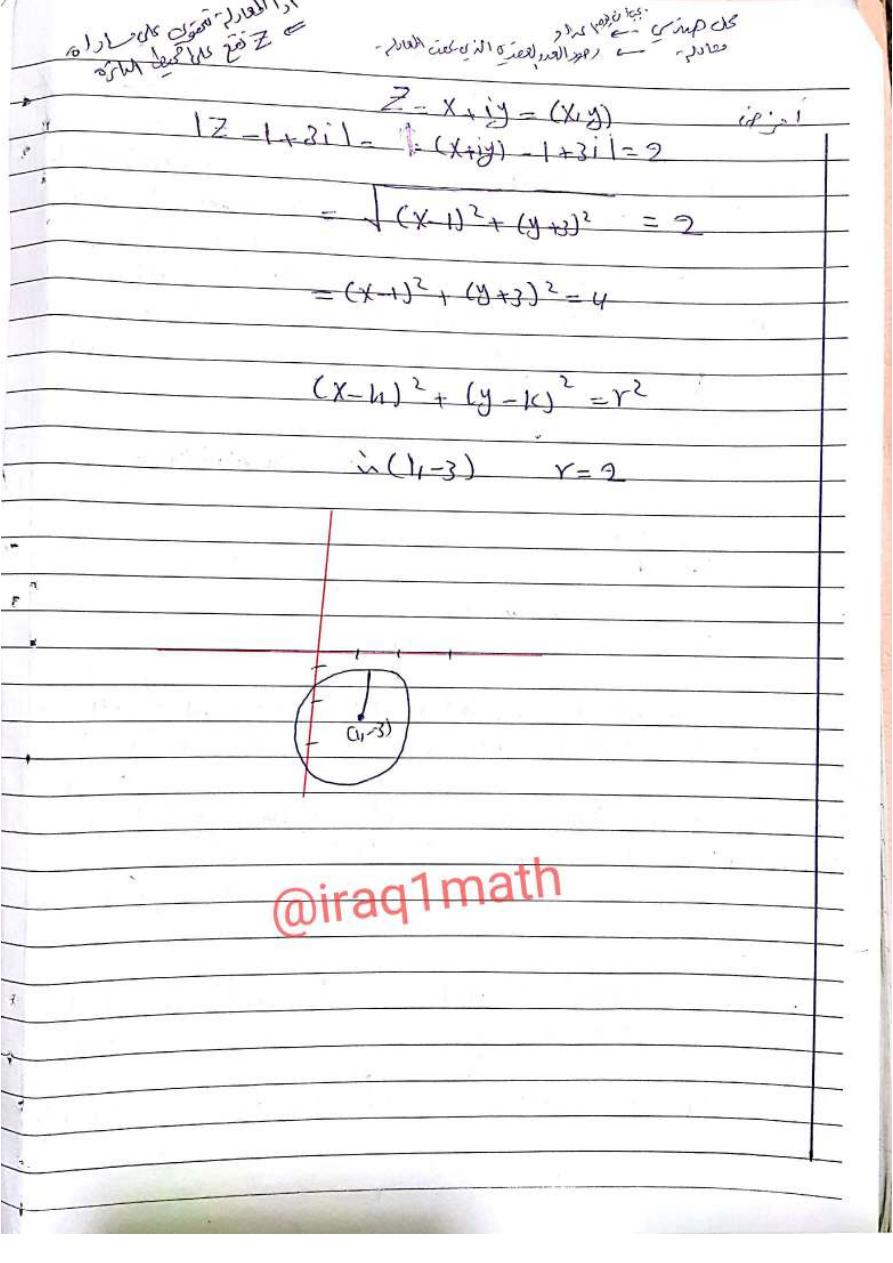 محل هندسي ←
معادلة ← هو العدد العقدي الذي يحقق المعادلة.
اذا المعادلة تحتوي على مساواة
⇐ Z تقع على محيط الدائرة
نفرض Z = x + iy = (x, y)
|Z - 1 + 3i| = |(x+iy) - 1 + 3i| = 2
= √(x-1)² + (y+3)² = 2
= (x-1)² + (y+3)² = 4
(x-h)² + (y-k)² = r²
(1, -3) r = 2
(1, -3)
@iraq1math